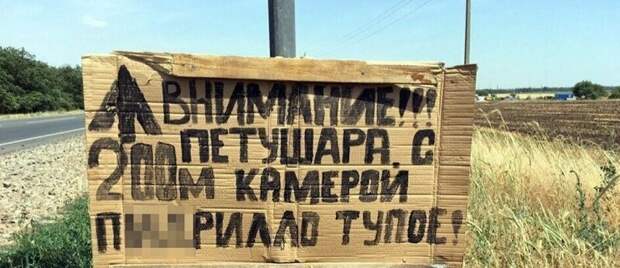 ВНИМАНИЕ!!!
ПЕТУШАРА С
200М КАМЕРОЙ
ТУПОЕ!